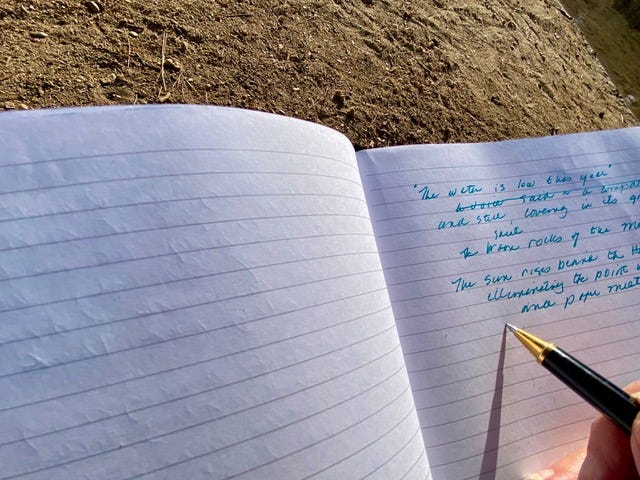 "The water is low this year"
said in a
and still, covering in its
the brown rocks of the
The sun rises behind the
illuminating the point
and paper meet